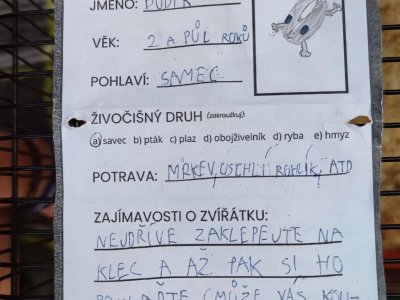 JMÉNO: PUDÍK
VĚK: 2 A PŮL ROKŮ
POHLAVÍ: SAMEC
ŽIVOČIŠNÝ DRUH (zakroužkuj):
a) savec b) pták c) plaz d) obojživelník d) ryba e) hmyz
POTRAVA: MRKEV, USCHLÍ ROHLÍK, ATD
ZAJÍMAVOSTI O ZVÍŘÁTKU:
NEJDŘÍVE ZAKLEPEJTE NA
KLEC A AŽ PAK SI HO
MŮŽE VÁS